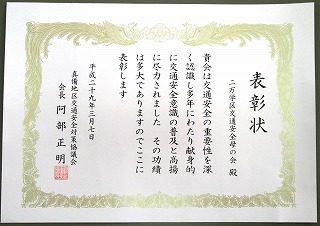 表彰状
二万学区交通安全母の会 殿
貴会は交通安全の重要性を深
く認識し多年にわたり献身的
に交通安全意識の普及と高揚
に尽力されました その功績
は多大でありますのでここに
表彰します
平成二十九年三月七日
真備地区交通安全対策協議会
会長 阿部正明